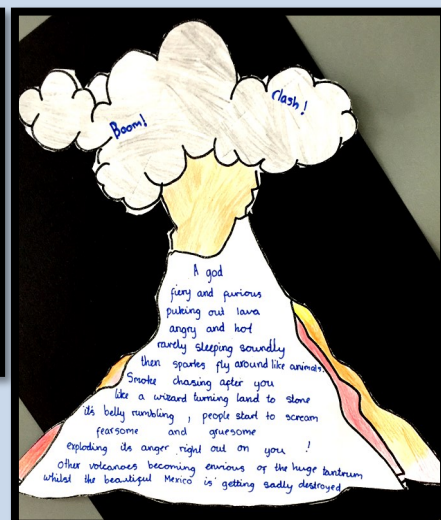 Boom!
Clash!
A god
fiery and furious
puking out lava
angry and hot
rarely sleeping soundly
then sparks fly around like animals.
Smoke chasing after you
like a wizard turning land to stone
it's belly rumbling , people start to scream
fearsome and gruesome
exploding its anger right out on you !
Other volcanoes becoming envious of the huge tantrum
whilst the beautiful Mexico is getting sadly destroyed